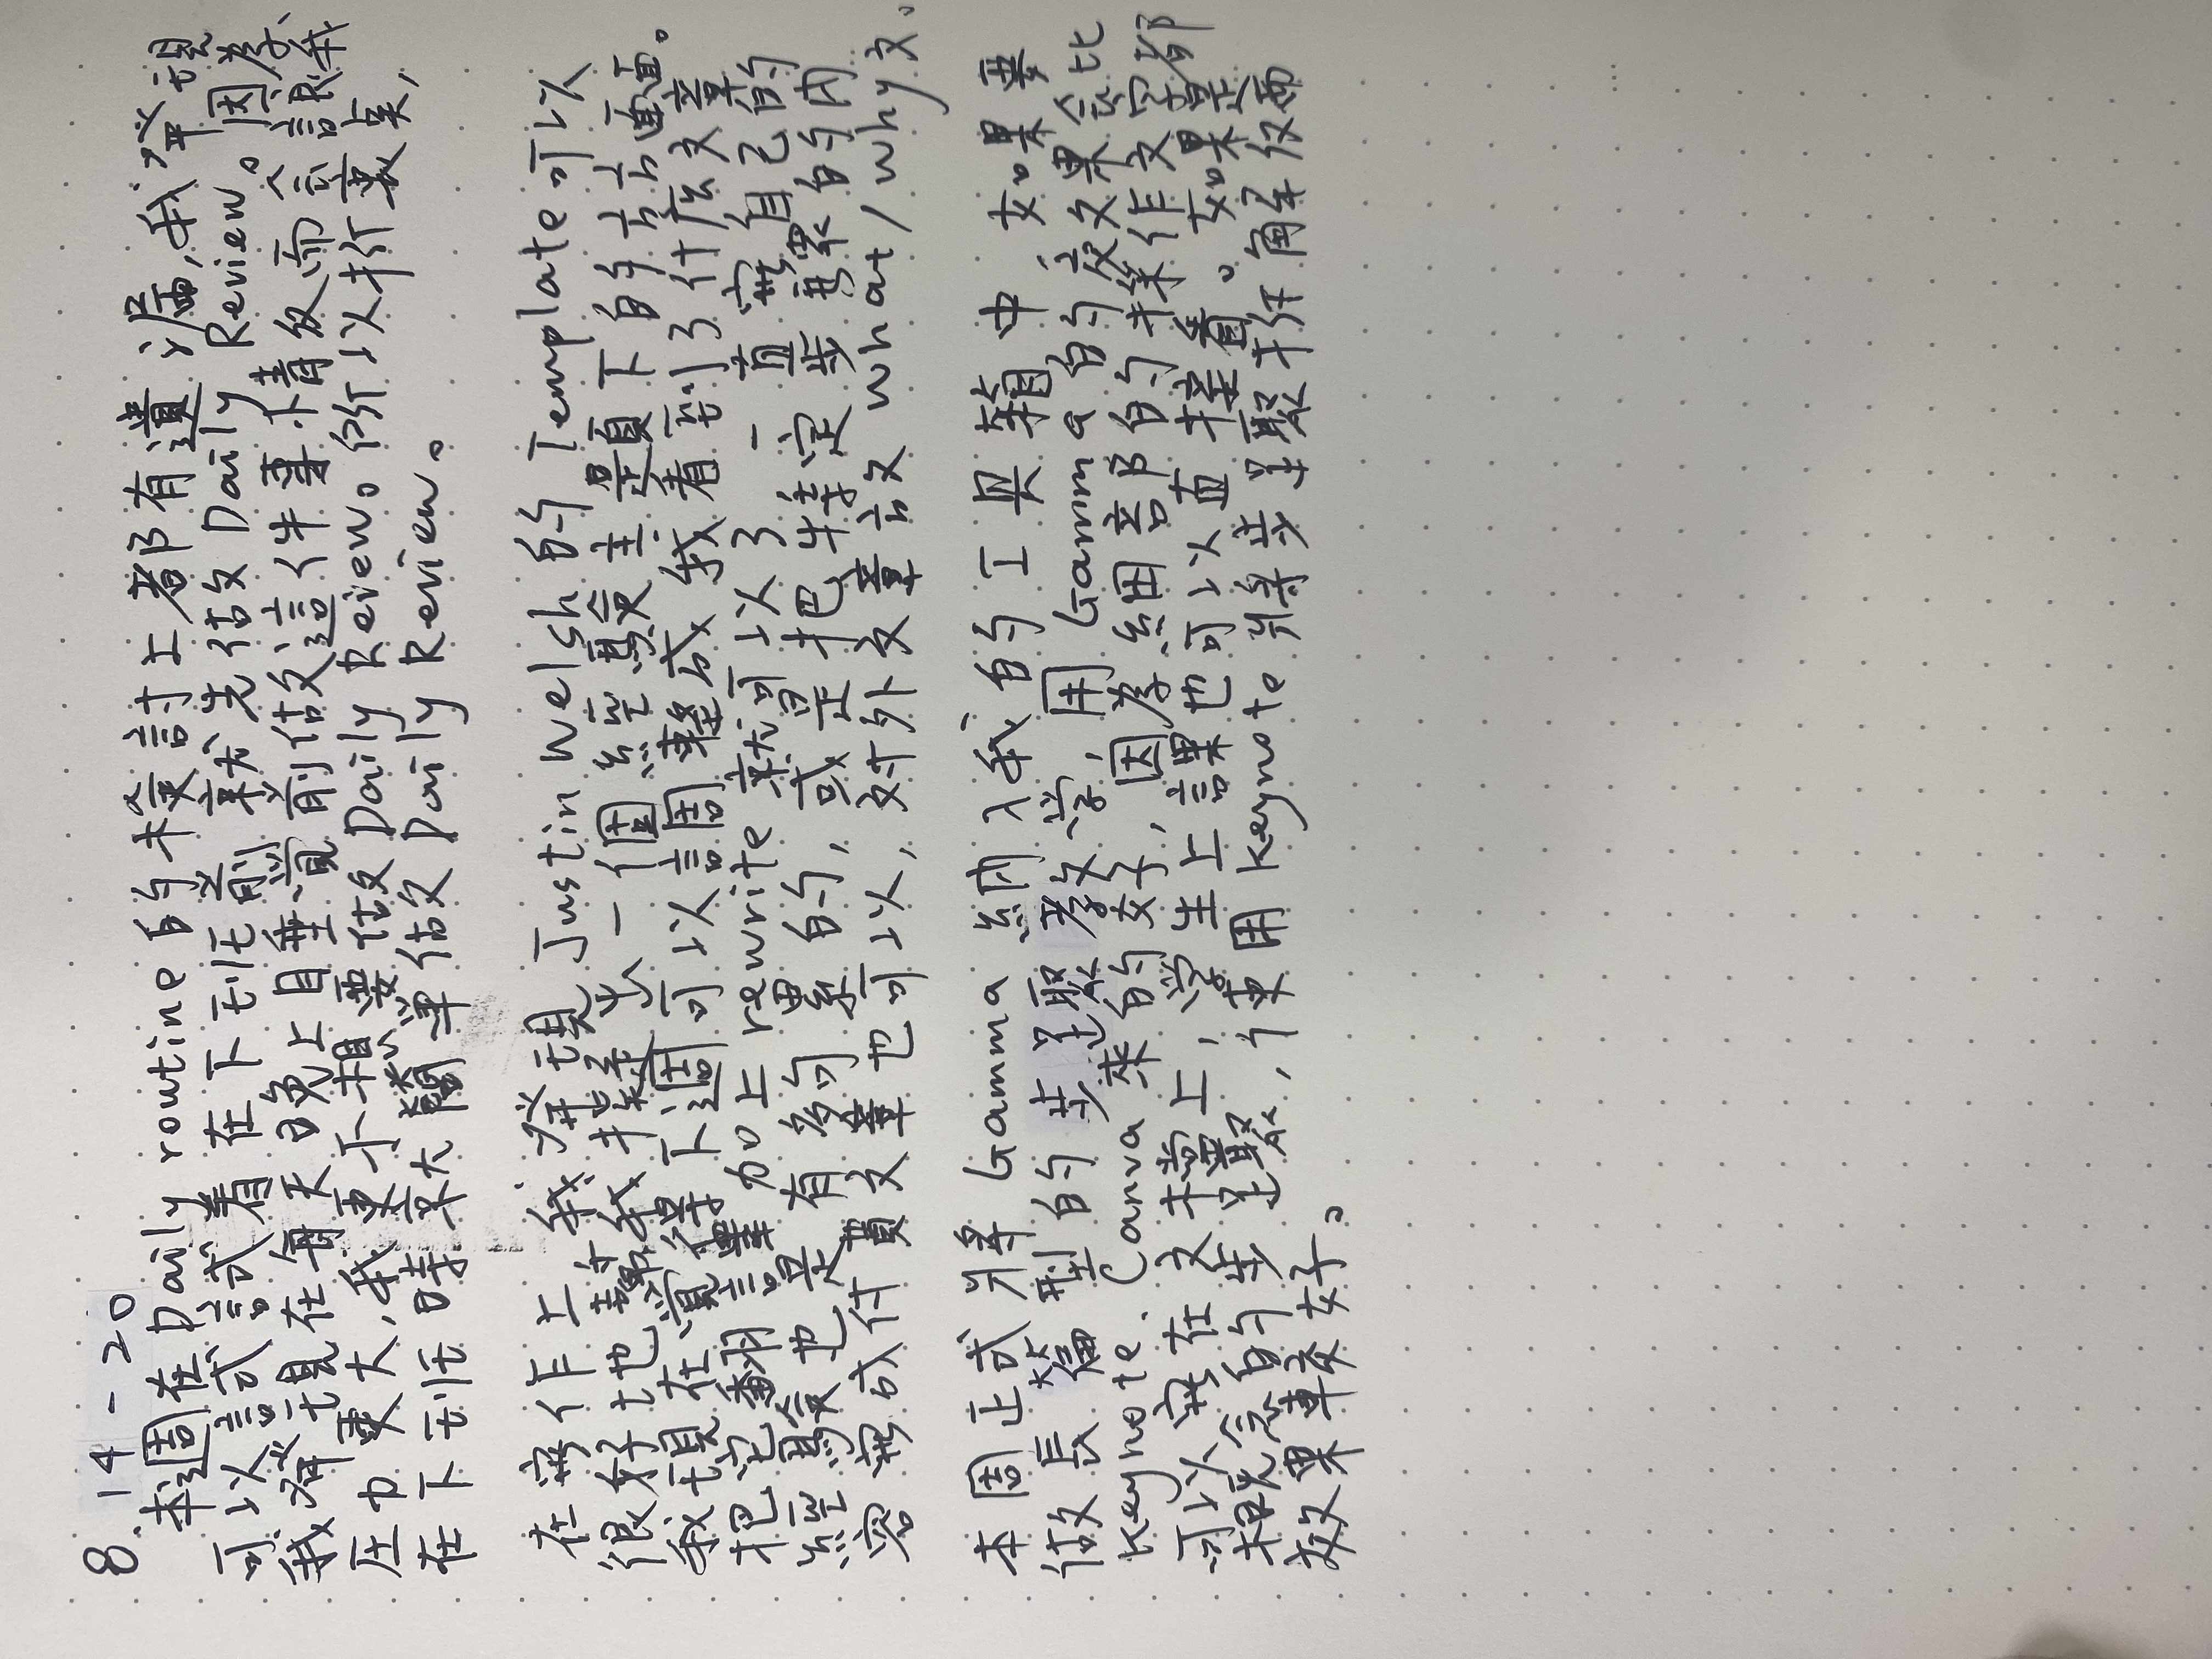 8.14-20
本週在Daily routine的檢討上都有遺漏,我發現
可以試試着在下班前就先做Daily Review。因為
我發現在每天晚上睡覚前做這件事情反而会讓我
压力更大,我更不想要做Daily Reiew。所以折衷点,
在下班時就簡單做Daily Review。
在寫作上,我発現Justin Welsh的Template可以
很好地幫我擬出一個經驗主題下的方方面面。
我現在覚得下週可以調整成我看到了什麼文章
把它翻譯加上rewrite就可以了,一直寫自己的
經驗也是有夠累的,或是把特定步驟的內
容寫成付費文章也可以,対外文章放what/why文。
本周正式將Gamma納入我的工具箱中,如果要
做長篇型的步驟教学,用Gamma的效果会比
keynote、Canva來的好,因為細部的操作文字都
可以寫在文檔上,学生上課也可以直接看。如果是
概念的步驟,使用keynote將步驟拆解反而
效果較好。